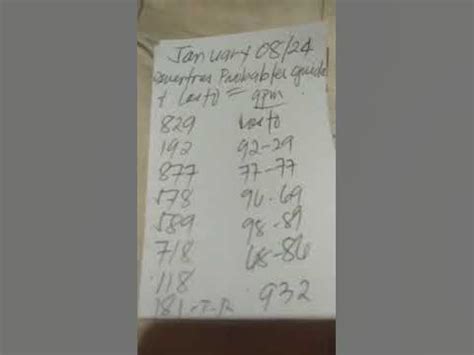 January 08/24
Swertres Probables guide
+ Lasto = 9pm
829 Lasto
192 92-29
877 77-77
578 96-69
589 98-89
718 68-86
118
181-T-R 932